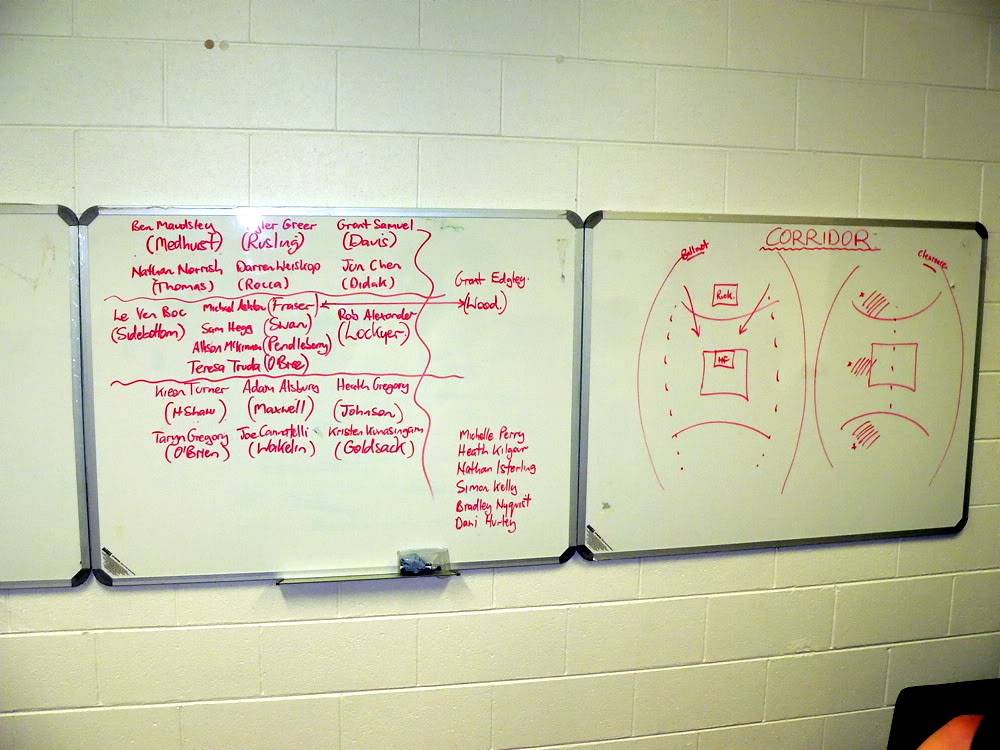 Ben Maudsley Tyler Greer Grant Samuel
(Medhurst) (Rusling) (Davis)
Nathan Norrish Darren Weiskop Jun Chen
(Thomas) (Rocca) (Didak)
Grant Edgley
(Wood)
Le Ven Boc Michael Ashton (Fraser) Rob Alexander
(Sidebottom) Sam Hegg (Swan) (Lockyer)
Allison McKinnon (Pendlebury)
Teresa Truda (O'Bree)
Kieon Turner Adam Alsbury Heath Gregory
(H Shaw) (Maxwell) (Johnson)
Taryn Gregory Joe Cannatelli Kristen Kunasingam
(O'Brien) (Wakelin) (Goldsack)
Michelle Perry
Heath Kilgour
Nathan Isterling
Simon Kelly
Bradley Nyquist
Dani Hurley
CORRIDOR
Ballnet
Clearance
Ruck
HF